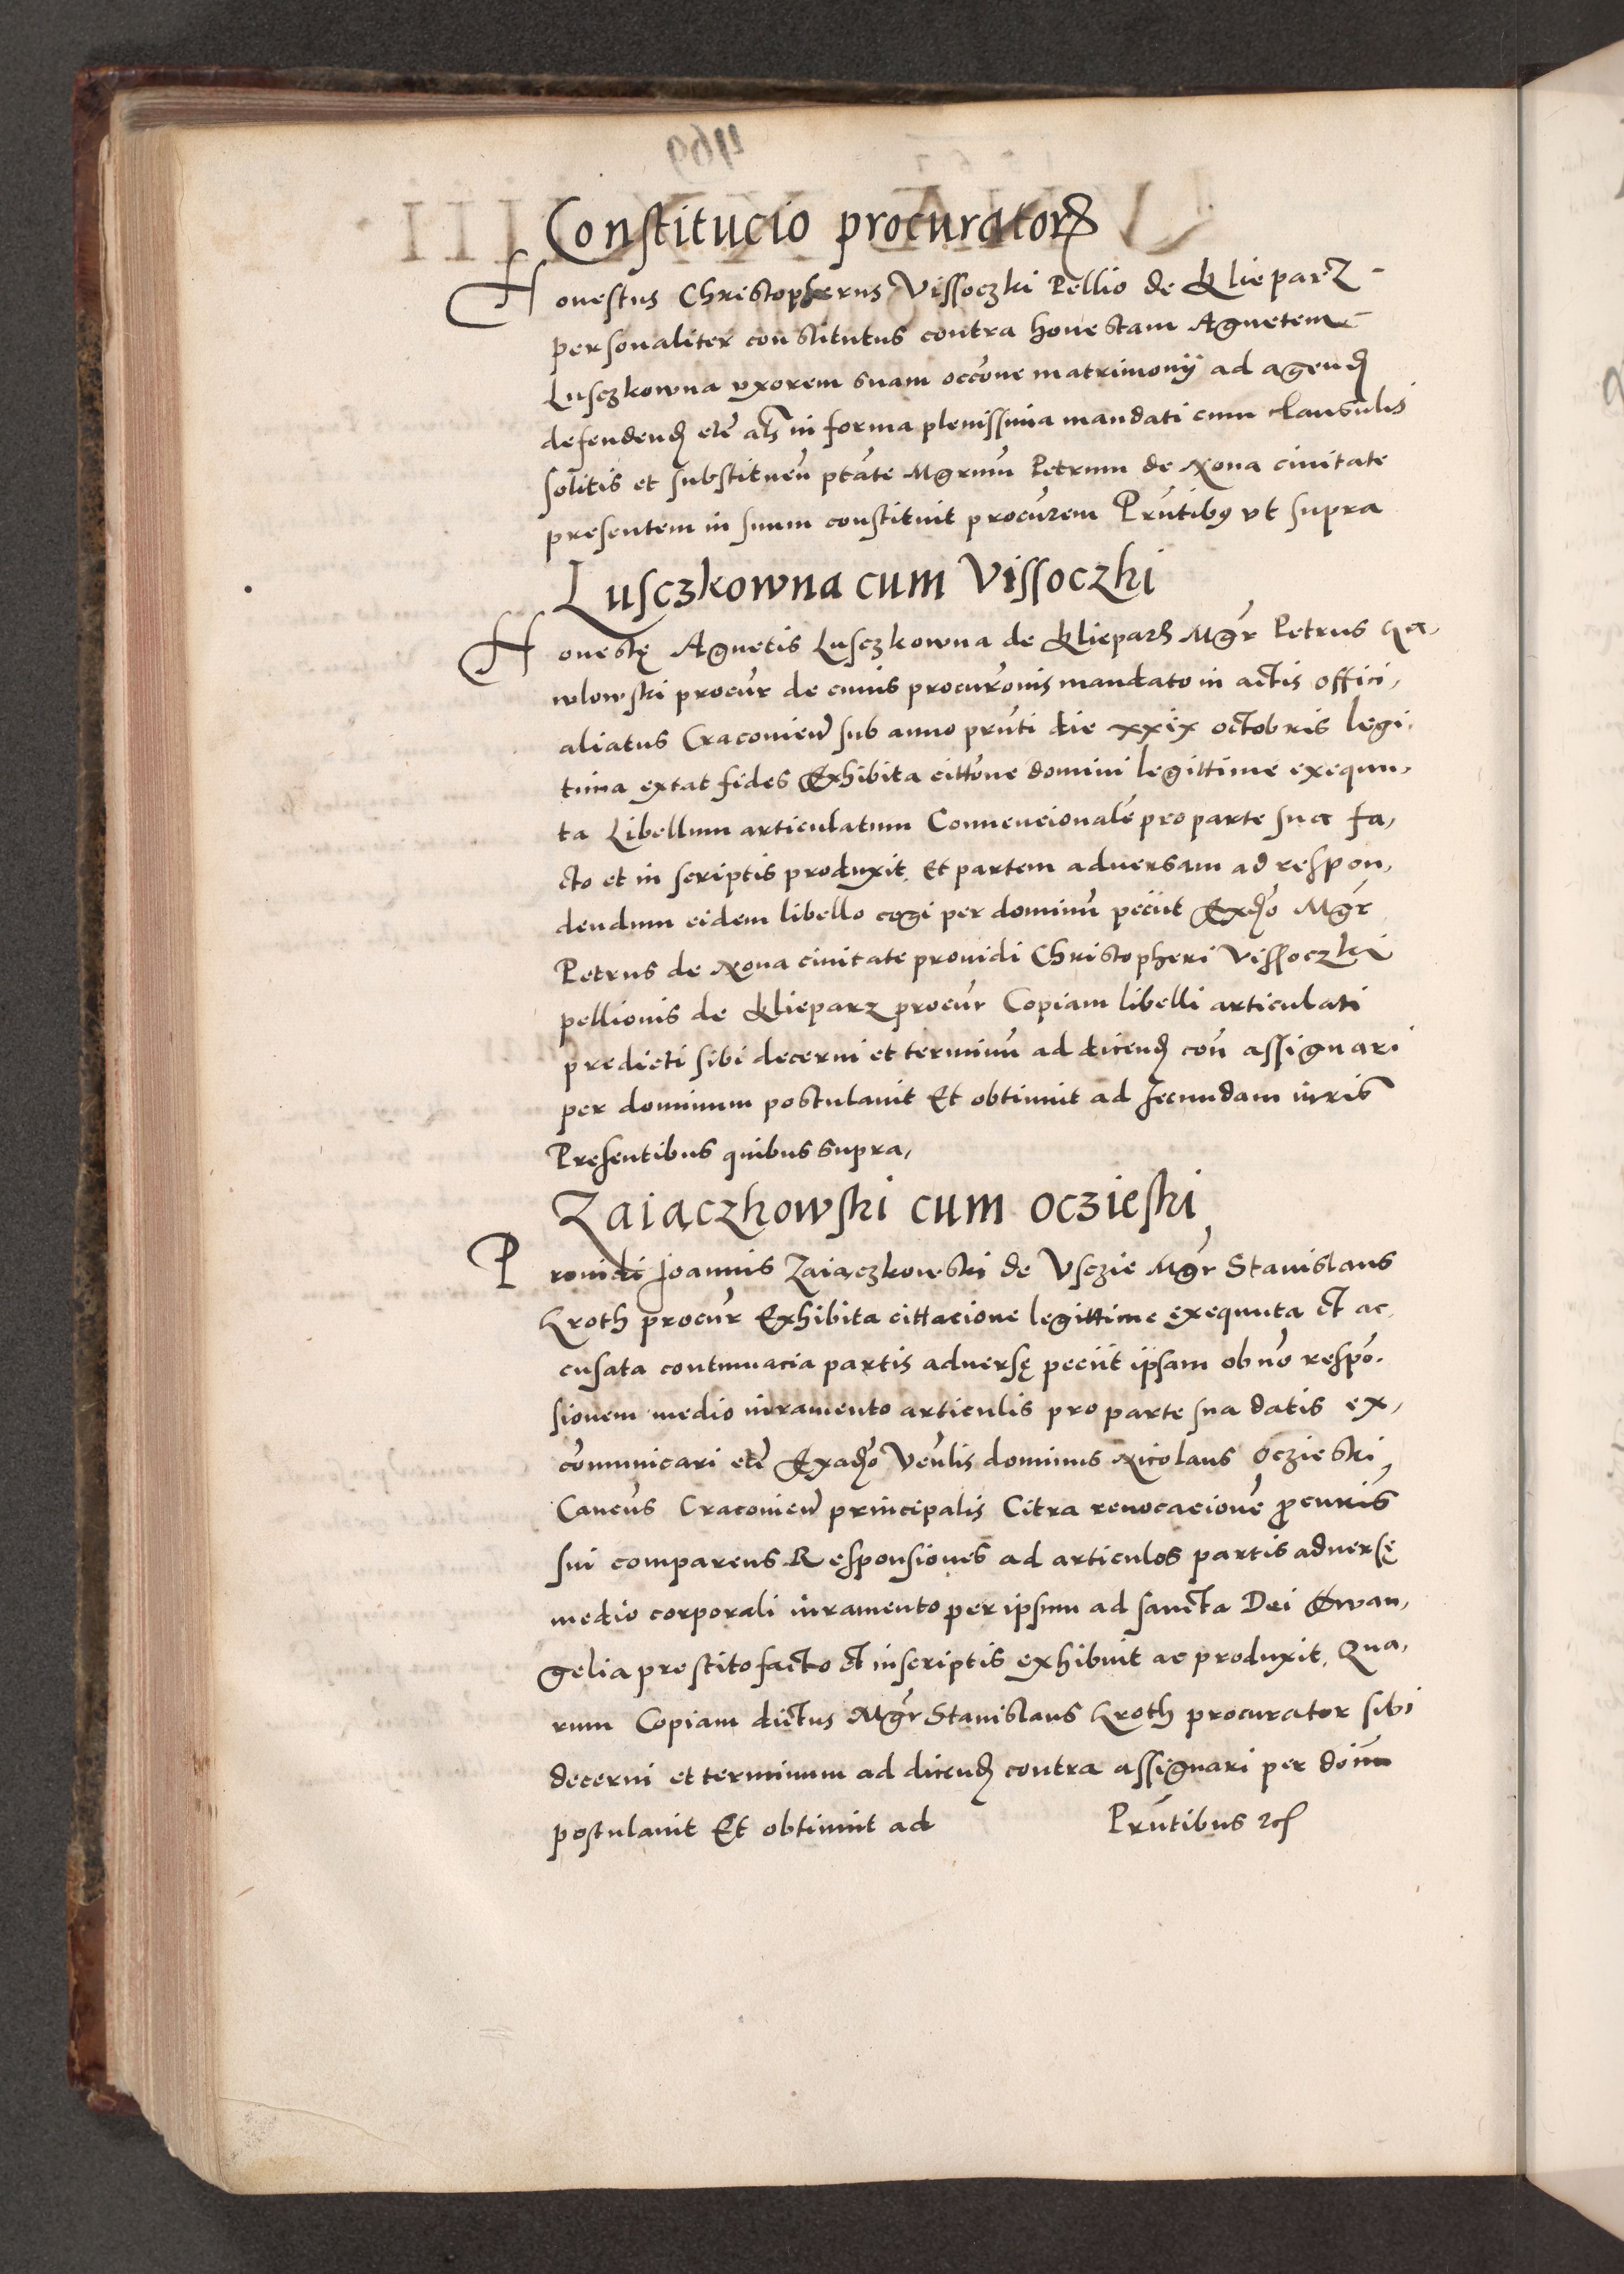 Constitucio procurator
Honestus Christopherus Vissoczki Pellio de Klieparz
personaliter constitutus contra honestam Agnetem
Lusczkowna vxorem suam occone matrimonÿ ad agend
defendend etc als in forma plenissima mandati cum clausulis
solitis et substituen ptate Mgrum Petrum de Noua ciuitate
presentem in suum constituit procurem Prntibus vt supra
Lusczkowna cum Vissoczki
Honestę Agnetis Lusczkowna de Klieparz Mgr Petrus
wlowski procur de cuius procuronis mandato in actis offici,
aliatus Cracouien sub anno prnti die xxix octobris legi,
tima extat fides Exhibita cittone domini legittime exequu,
ta Libellum articulatum Conuencionale pro parte sua fa,
cto et in scriptis produxit, Et partem aduersam ad respon,
dendum eidem libello cogi per dominu peciit Exado Mgr
Petrus de Noua ciuitate prouidi Christopheri Vissoczki
pellionis de Klieparz procur Copiam libelli articulati
predicti sibi decerni et terminu ad dicend con assignari
per dominum postulauit Et obtinuit ad secundam iuris
Presentibus quibus supra,
Zaiączkowski cum Oczieski
Prouidi Joannis Zaiączkowski de Vsczie Mgr Stanislaus
Kroth procur Exhibita cittacione legittime exequuta et ac
cusata contumacia partis aduersę peciit ipsam ob no respo.
sionem medio iuramento articulis pro parte sua datis ex,
comunicari etc Exado Venlis dominus Nicolaus Oczieski
Cancus Cracouien principalis Citra reuocacione procuris
sui comparens Responsiones ad articulos partis aduersę
medio corporali iuramento per ipsum ad sancta Dei Ewan,
gelia prestito facto et in scriptis exhibuit ac produxit, Qua,
rum Copiam dictus Mgr Stanislaus Kroth procurator sibi
decerni et terminum ad dicend contra assignari per doim
postulauit Et obtinuit ad Prntibus etc